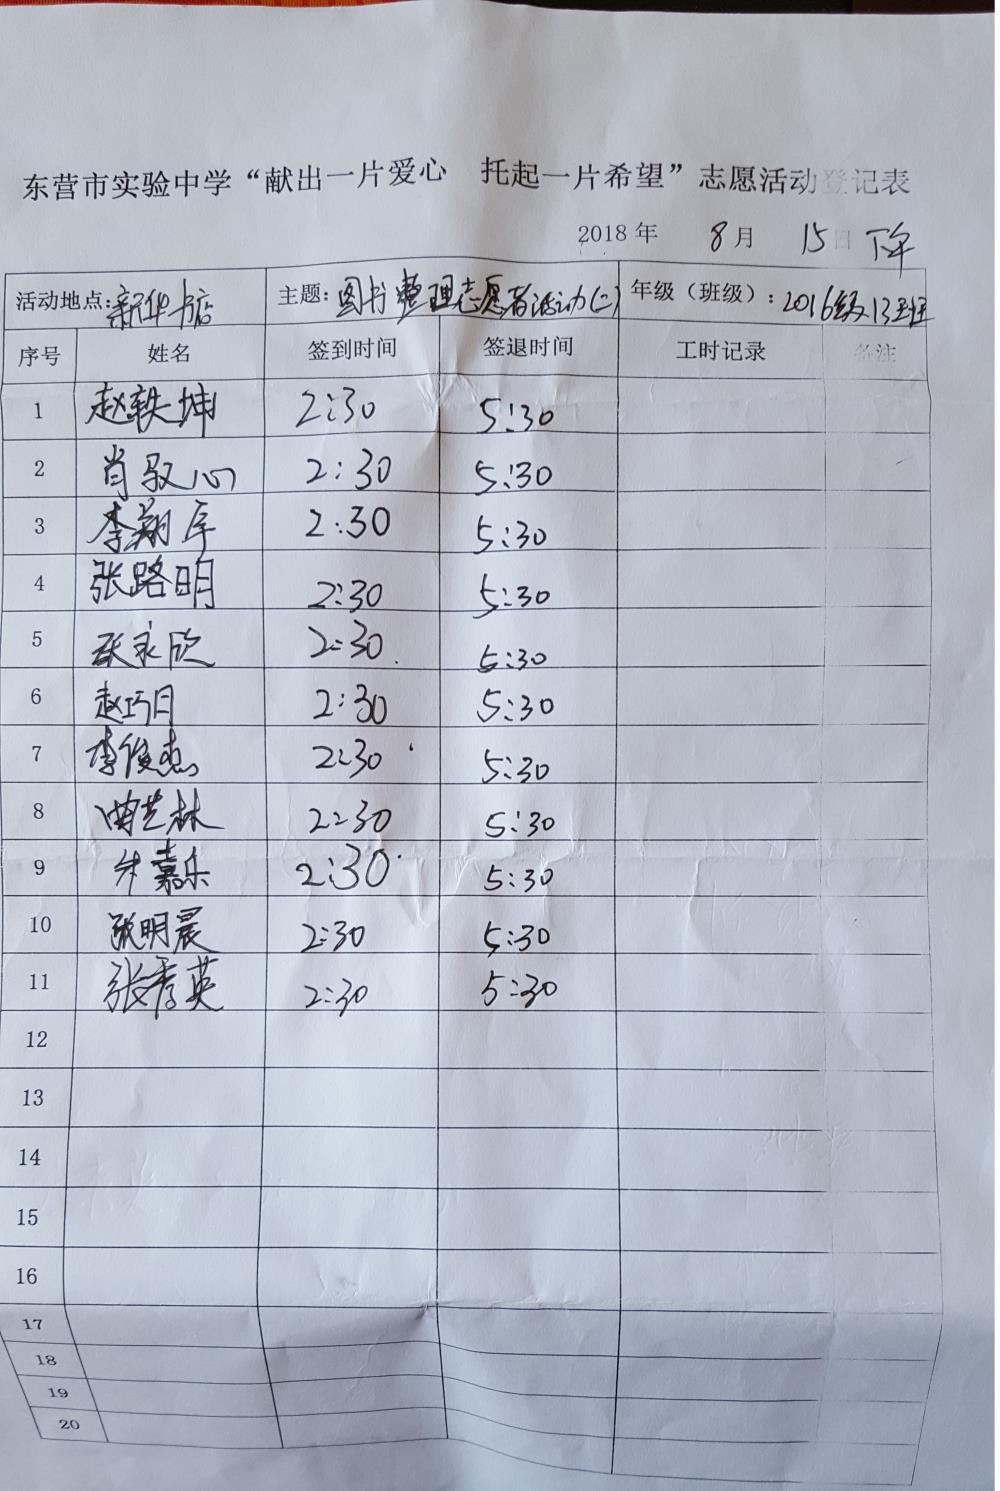 东营市实验中学“献出一片爱心 托起一片希望”志愿活动登记表
2018 年 8 月 15 日 下午
活动地点：新华书店 主题：图书整理志愿者活动(二) 年级（班级）：2016级13班
序号 姓名 签到时间 签退时间 工时记录 备注
1 赵轶坤 2:30 5:30
2 肖驭心 2:30 5:30
3 李翔宇 2:30 5:30
4 张路明 2:30 5:30
5 永欣 2:30 5:30
6 赵巧月 2:30 5:30
7 李俊杰 2:30 5:30
8 曲芝林 2:30 5:30
9 嘉乐 2:30 5:30
10 张明晨 2:30 5:30
11 张秀英 2:30 5:30
12
13
14
15
16
17
18
19
20